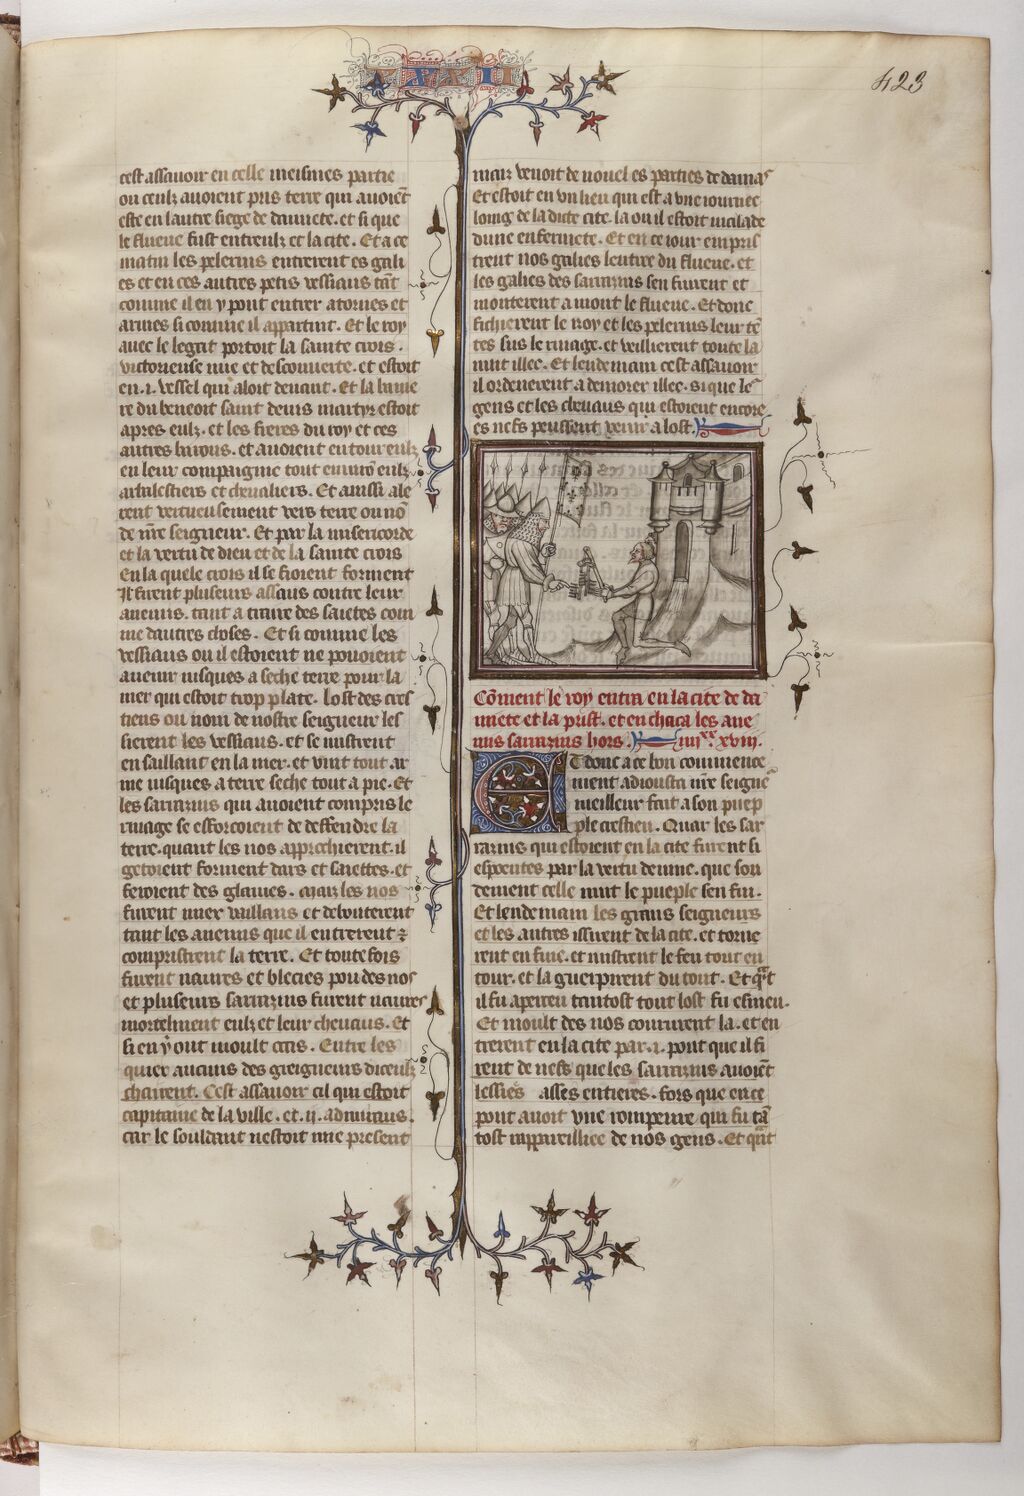 XXXII
423
cest assavoir en celle meismes partie
ou ceulz avoient pris terre qui avoiēt
este en lautre siege de damiete. et si que
le flueve fust entreulz et la cite. Et a ce
matin les pelerins entrerent es gali
es et en ces autres petis vessiaus tāt
comme il en y pout entrer atornes et
armes si comme il appartint. Et le roy
avec le legat portoit la sainte crois.
victorieuse nue et descouverte. et estoit
en .i. vessel qui aloit devant. Et la banie
re du benoit saint denis martyr estoit
apres eulz. et les freres du roy et ces
autres barons. et avoient entour eulz
en leur compaignie tout environ eulz
arbalestiers et chevaliers. Et ainssi ale
rent vertueusement vers terre ou nō
de nr̄e seigneur. Et par la misericorde
et la vertu de dieu et de la sainte crois
En la quele crois il se fioient forment
Il firent pluseurs assaus contre leur
anemis. tant a traire des saietes com
me dautres choses. Et si comme les
vessiaus ou il estoient ne povoient
avenir iusques a seche terre pour la
mer qui estoit trop plate. lost des cres
tiens ou nom de nostre seigneur les
sierent les vessiaus. et se mistrent
en saillant en la mer. et vint tout ar
me iusques a terre seche tout a pie. Et
les sarrazins qui avoient compris le
rivage se esforcoient de deffendre la
terre. quant les nos approchierent. il
getoient forment dars et saiettes. et
feroient des glaives. mais les nos
furent mlt vaillans et debouterent
tant les anemis que il entrerent et
compristrent la terre. Et toutefois
furent navres et blecies pou des nos
et pluseurs sarrazins furent navres
mortelment eulz et leur chevaus. Et
si en y out moult occis. Entre les
quiex aucuns des greigneurs diceulz
chairent. Cest assavoir cil qui estoit
capitaine de la ville. et .ii. admiraus.
car le souldant nestoit mie present
mais venoit de nouvel es parties de damas
Et estoit en un lieu qui est a une iournee
loing de la dicte cite. la ou il estoit malade
dune enfermete. Et en ce iour empris
trent nos galies lentree du flueve. et
les galies des sarrazins sen fuirent et
monterent a mont le flueve. Et donc
fichierent le Roy et les pelerins leur tē
tes sus le rivage. et veillierent toute la
nuit illec. Et lendemain cest assavoir
il ordenerent a demorer illec. si que les
gens et les chevaus qui estoient encore
es nefs peussent venir a lost.
Cōment le roy entra en la cite de da
miete et la prist. et en chaca les ane
mis sarrazins hors. iiii.xx. xviii.
Et donc a ce bon commence
ment adiousta nr̄e seigneur
meilleur fait a son puep
ple crestien. Quar les sar
razins qui estoient en la cite furent si
espoentes par la vertu devine. que sou
dement celle nuit le pueple sen fui.
Et lendemain les grans seigneurs
et les autres issirent de la cite. et torne
rent en fuie. et mistrent le feu tout en
tour. et la guerpirent du tout. Et qāt
il fu aperceu tantost tout lost fu esmeu.
Et moult des nos coururent la. et en
trerent en la cite par .i. pont que il fi
rent de nefs que les sarrazins avoiēt
lessies asses entieres. fors que en ce
pont avoit une rompeure qui fu tā
tost rappareilliee de nos gens. Et qāt